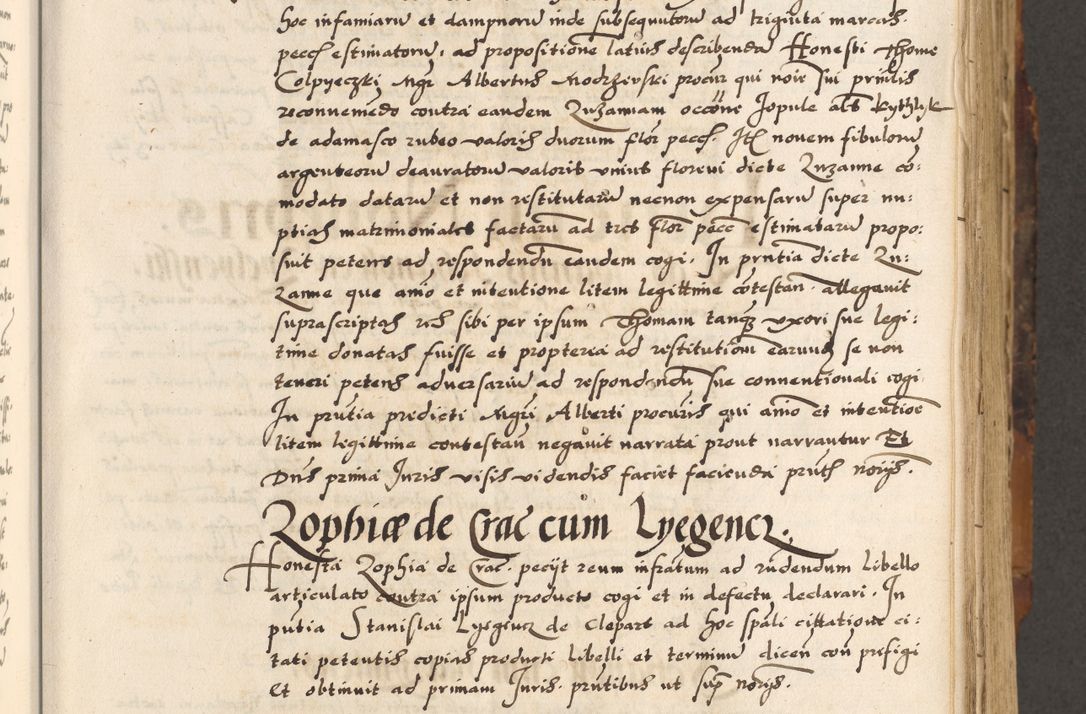 hoc infamiarū et dampnorū inde subsequutorū ad triginta marcas
pecc͞ estimatorū, ad propositionē latius describendā Honesti Thome
Colpyeczki Mgr Albertus Modrzewski procur qui noīe sui prīn̄lis
reconveniēdo contra eandem Zuzannam occōne Jopule als kythlyk
de adamasco rubeo valoris duorum flor pecc͞. Itē novem fibulorū
argenteorū deauratorū valoris unius floreni dicte Zuzanne co:
modato datarū et non restitutarū necnon expensarū super nu:
ptias matrimoniales factarū ad tres flor pecc͞ estimatarū propo:
suit petens ad respondendū eandem cogi. In pn̄tia dicte Zu:
zanne que anīo et intentione litem legittime cōtestan̄. allegavit
suprascriptas res sibi per ipsum Thomam tanq̄ uxori sue legi:
time donatas fuisse et propterea ad restitutionē earum se non
teneri petens adversariū ad respondendū sue conventionali cogi
In pn̄tia predicti Mgri Alberti procuris qui anīo et intentiōe
litem legittime contestan̄ negavit narrata prout narrantur Et
Dn̄s prima Juris visis videndis faciet facienda pn̄tib noīs.
Zophiæ de Crac cum Lyegencz.
Honesta Zophia de Crac. pecijt reum infratum ad rn̄dendum libello
articulato contra ipsum producto cogi et in defectu declarari. In
pn̄tia Stanislai Lyegencz de Clepars ad hoc spāli cittatione ci:
tati petentis copias producti libelli et terminū dicen̄ con̄ prefigi
Et obtinuit ad primam Juris. pn̄tibus ut sup̄ noīs.